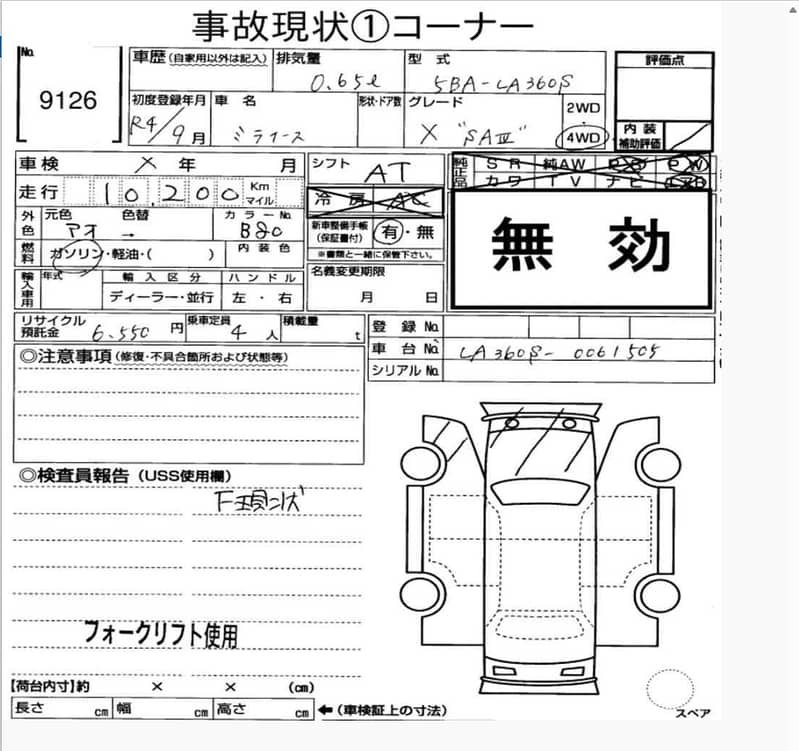 事故現状①コーナー
No.
9126
車歴(自家用以外は記入)
排気量
0.65ℓ
型 式
5BA-LA360S
評価点
初度登録年月
R4/9月
車 名
ミライース
形状・ドア数
グレード
X "SAⅢ"
2WD
・
4WD
内 装
補助評価
車検
× 年 月
シフト
AT
純正品
SR 純AW PS PW
カワ TV ナビ エアB
走行
10,200
Km
マイル
冷 房
AC
無 効
外色
元色
アオ
色替
→
カラーNo.
B80
新車整備手帳
(保証書付)
有・無
※書類と一緒に保管下さい。
燃料
ガソリン・軽油・( )
内装色
輸入車用
年式
輸入区分
ディーラー・並行
ハンドル
左 ・ 右
名義変更期限
月 日
リサイクル
預託金
6.550 円
乗車定員
4 人
積載量
t
登 録 No.
車 台 No.
LA360S-0061505
シリアル No.
◎注意事項(修復・不具合箇所および状態等)
◎検査員報告(USS使用欄)
F現状
フォークリフト使用
【荷台内寸】約 × × (cm)
長さ cm 幅 cm 高さ cm ←(車検証上の寸法)
スペア